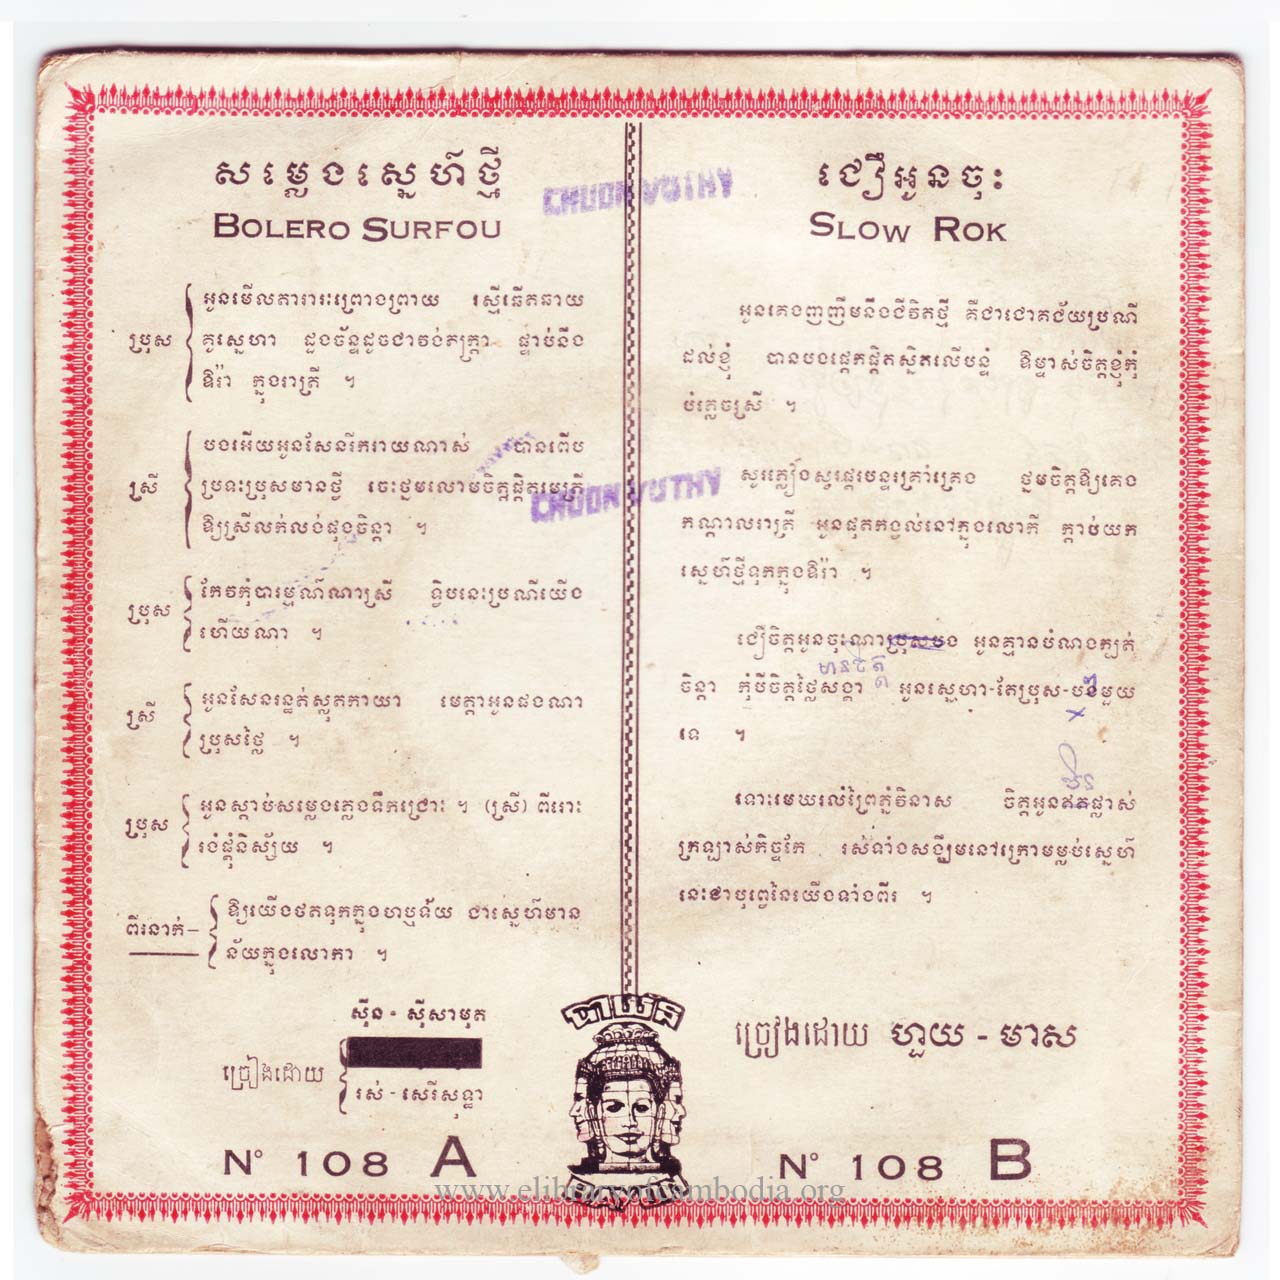 សម្លេងស្នេហ៍ថ្មី
BOLERO SURFOU
ប្រុស
អូនមើលតារារះព្រោងព្រាយ រស្មីឆើតឆាយ
គូរស្នេហា ដួងច័ន្ទដូចជាវង់ភក្ត្រា ផ្ទាប់នឹង
ឱរ៉ា ក្នុងរាត្រី ។
ស្រី
បងអើយអូនសែនរីករាយណាស់ បានពើប
ប្រទះប្រុសមានថ្វី ចេះថ្នមលោមចិត្តផ្តិតមេត្រី
ឱ្យស្រីលក់លង់ផុងចិន្តា ។
ប្រុស
កែវកុំបារម្មណ៍ណាស្រី ទ្វិបនេះប្រណីយើង
ហើយណា ។
ស្រី
អូនសែនរន្ធត់ស្លុតកាយា មេត្តាអូនផងណា
ប្រុសថ្លៃ ។
ប្រុស
អូនស្តាប់សម្លេងភ្លេងទឹកជ្រោះ ។ (ស្រី) ពីរោះ
រងំផ្គុំនិស្ស័យ ។
ពីរនាក់-
ឱ្យយើងថតទុកក្នុងហឫទ័យ ជាស្នេហ៍មាន
ន័យក្នុងលោកា ។
ច្រៀងដោយ
ស៊ីន - ស៊ីសាមុត
រស់ - សេរីសុទ្ធា
Nº 108 A
ជឿអូនចុះ
SLOW ROK
អូនគេងញញឹមនឹងជីវិតថ្មី គឺជាជោគជ័យប្រណី
ដល់ខ្ញុំ បានបងផ្តេកផ្តិតស្និតលើបន្ទំ ឱម្ចាស់ចិត្តខ្ញុំកុំ
បំភ្លេចស្រី ។
សូរភ្លៀងស្វរផ្គរបន្ទរគ្រាំគ្រេង ថ្នមចិត្តឱ្យគេង
កណ្តាលរាត្រី អូនផុតកង្វល់នៅក្នុងលោកី ក្តាប់យក
ស្នេហ៍ថ្មីទុកក្នុងឱរ៉ា ។
ជឿចិត្តអូនចុះណាប្រុសបង អូនគ្មានបំណងក្បត់
មានចិត្ត
ចិន្តា កុំបីចិត្តថ្លៃសង្កា អូនស្នេហា-តែប្រុស-បងមួយ
ទេ ។
មិន
ទោះមេឃរលំព្រៃភ្នំវិនាស ចិត្តអូនឥតផ្លាស់
ត្រឡាស់កិច្ចកែ រស់ទាំងសង្ឃឹមនៅក្រោមម្លប់ស្នេហ៍
នេះជាបុព្វេនៃយើងទាំងពីរ ។
ច្រៀងដោយ ហួយ - មាស
Nº 108 B
បាយ័ន
CHUON VUTHY
CHUON VUTHY
www.elibraryofcambodia.org